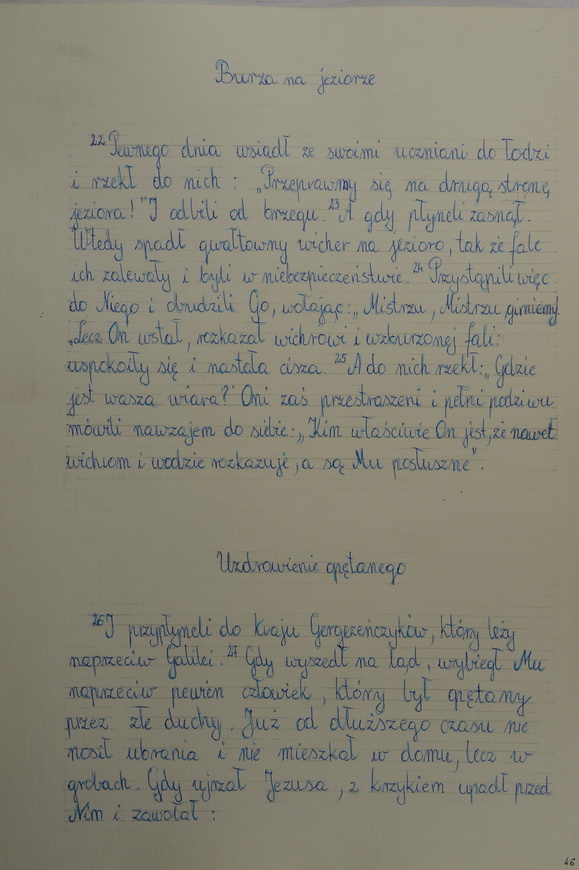 Burza na jeziorze
22 Pewnego dnia wsiadł ze swoimi uczniami do łodzi
i rzekł do nich: „Przeprawmy się na drugą stronę
jeziora!" I odbili od brzegu. 23 A gdy płyneli zasnął.
Wtedy spadł gwałtowny wicher na jezioro, tak że fale
ich zalewały i byli w niebezpieczeństwie. 24 Przystąpili więc
do Niego i obudzili Go, wołając: „Mistrzu, Mistrzu, giniemy!
„Lecz On wstał, rozkazał wichrowi i wzburzonej fali:
uspokoiły się i nastała cisza. 25 A do nich rzekł: „Gdzie
jest wasza wiara?" Oni zaś przestraszeni i pełni podziwu
mówili nawzajem do siebie: „Kim właściwie On jest, że nawet
wichrom i wodzie rozkazuje, a są Mu posłuszne".
Uzdrowienie opętanego
26 I przypłyneli do kraju Gergezeńczyków, który leży
naprzeciw Galilei. 27 Gdy wyszedł na ląd, wybiegł Mu
naprzeciw pewien człowiek, który był opętany
przez złe duchy. Już od dłuższego czasu nie
nosił ubrania i nie mieszkał w domu, lecz w
grobach. Gdy ujrzał Jezusa, z krzykiem upadł przed
Nim i zawołał:
46